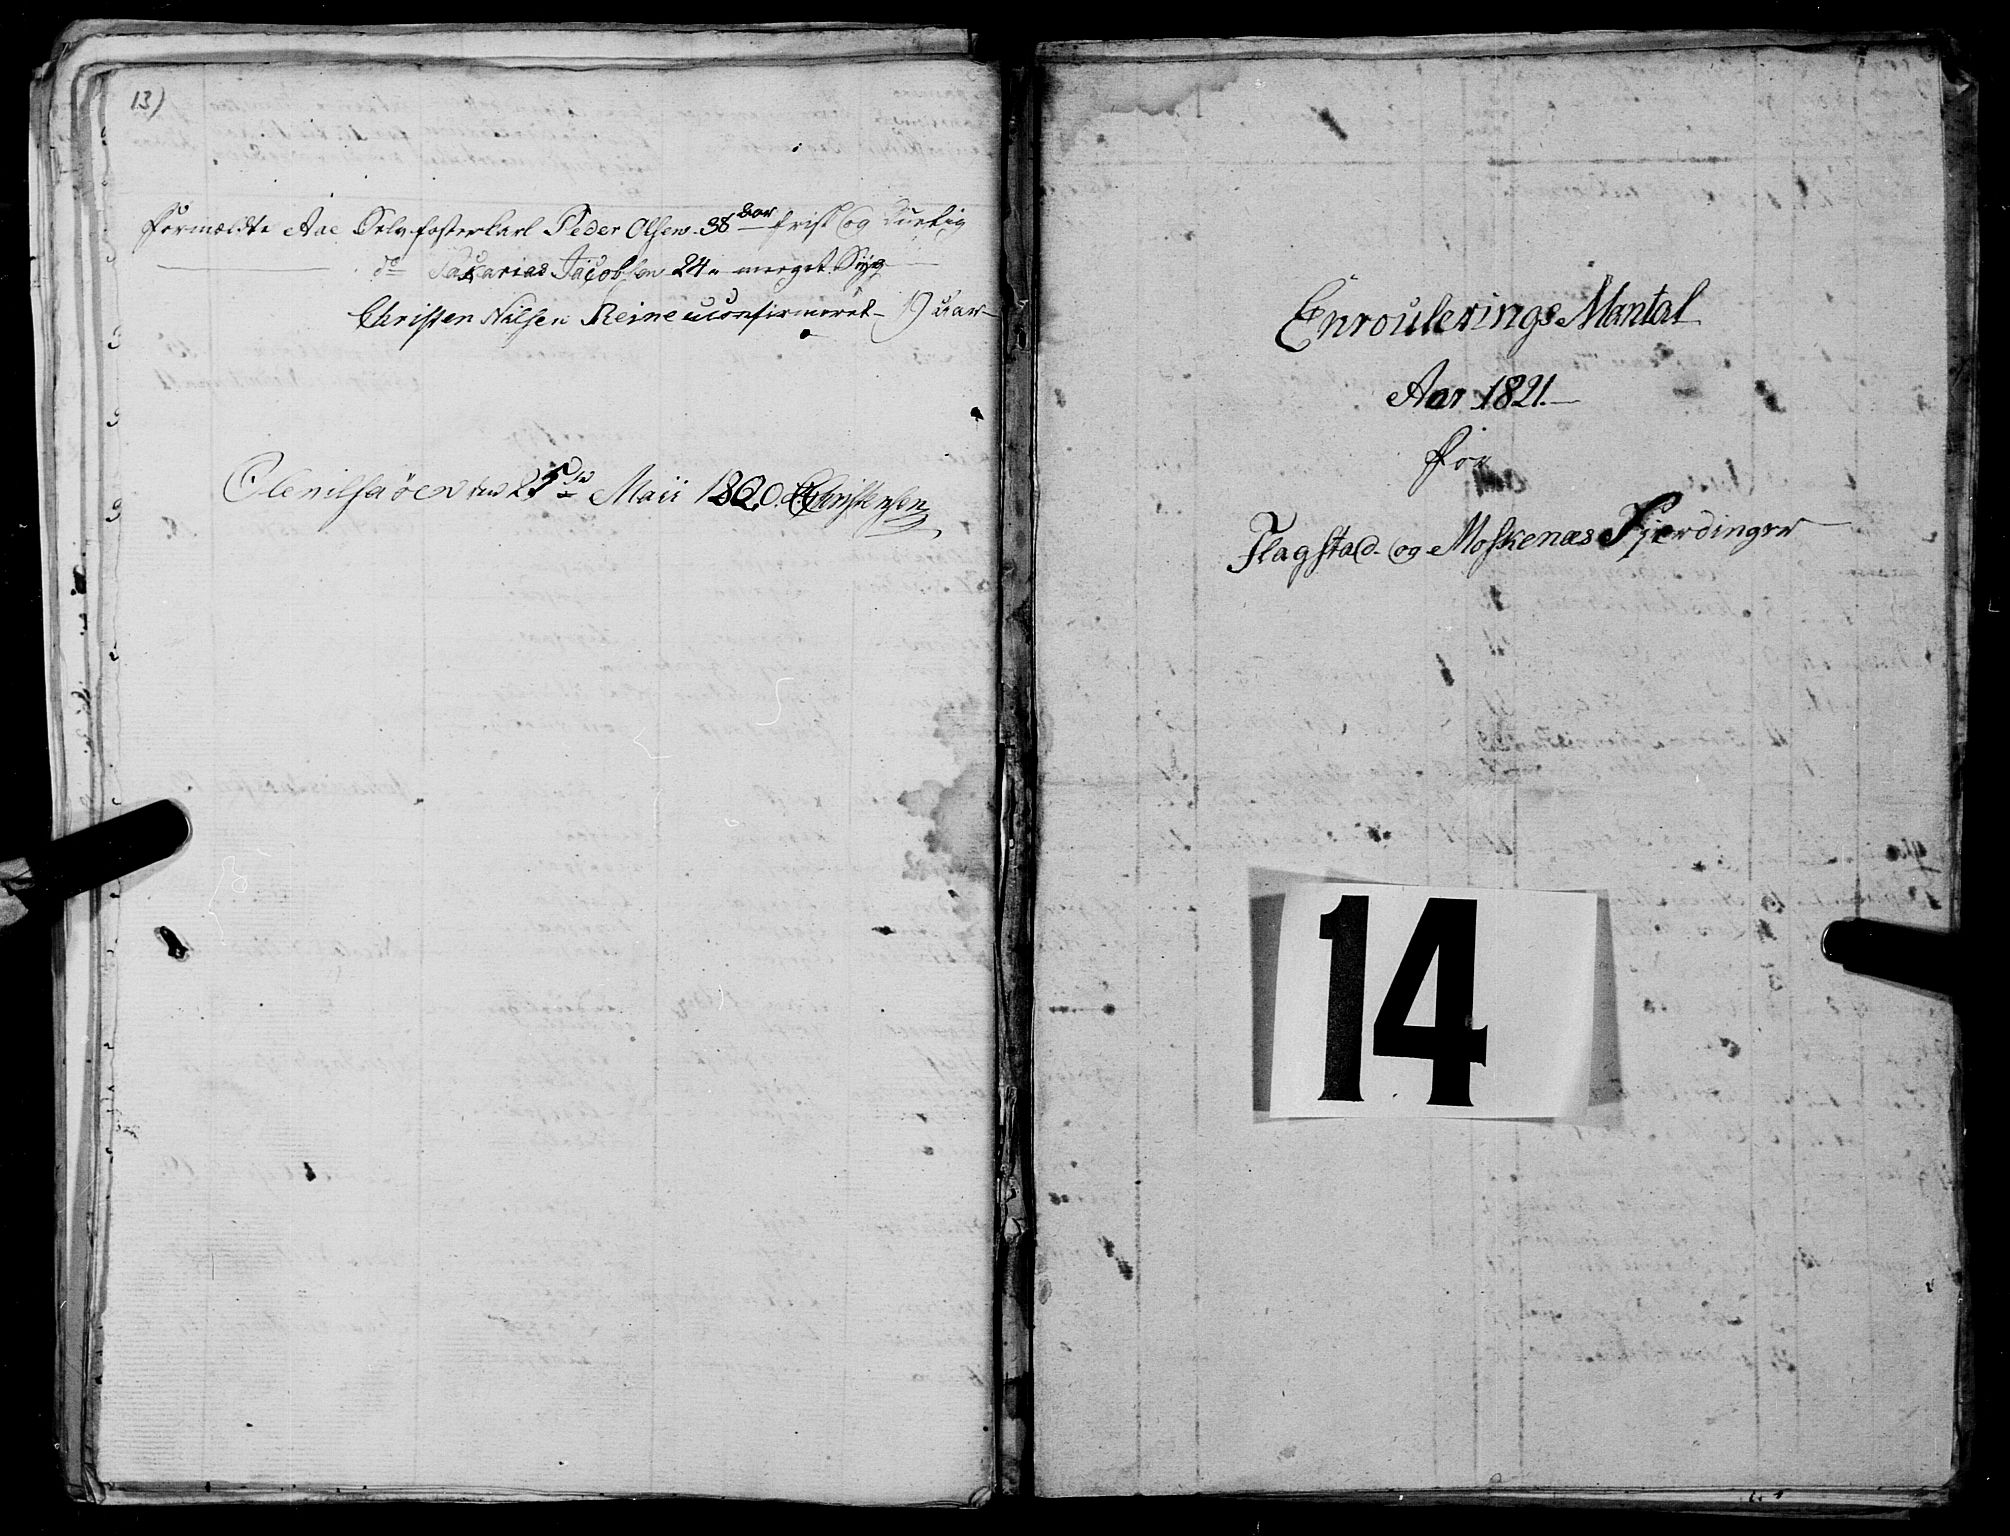 13)
Formældte Aae Selvfosterkarl Peder Olsen 38 aar frisk og duelig
do Zakarias Jacobsen 24 " meeget Syg
Christen Nilsen Reine uconfirmeret 19 aar
Olenilsaøen den 25de Maii 1820. Christensen
Enroulerings Mantal
Aar 1821.
for
Flagstad og Moskenæs Fjerdinger
14